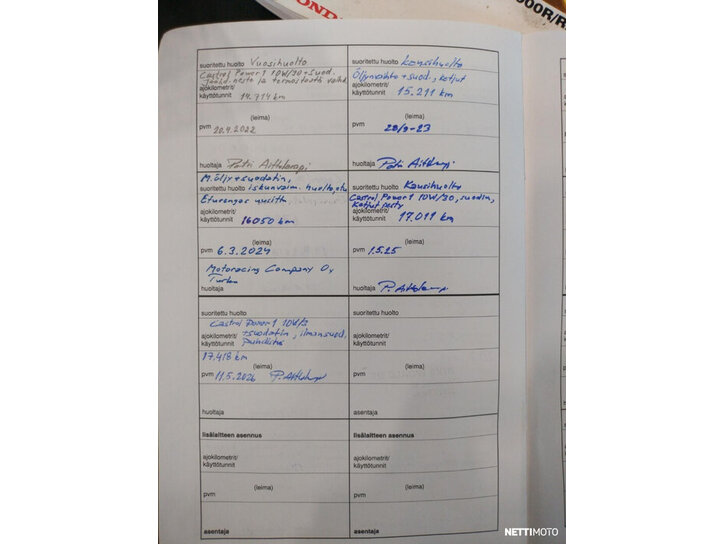 HONDA
000R/R
suoritettu huolto Vuosihuolto
Castrol Power1 10W/30 + suod.
Jäähd.neste ja termostaatti vaihd.
ajokilometrit/
käyttötunnit 14.714 km
(leima)
pvm 20.4.2022
huoltaja Petri
suoritettu huolto Kausihuolto
Öljynvaihto + suod, ketjut
ajokilometrit/
käyttötunnit 15.211 km
(leima)
pvm 28/9-23
huoltaja Petri
M.öljy + suodatin,
suoritettu huolto iskunvaim. huolto, etu
Eturengas uusittu,
ajokilometrit/
käyttötunnit 16050 km
(leima)
pvm 6.3.2024
Motoracing Company Oy
Turku
huoltaja
suoritettu huolto Kausihuolto
Castrol Power1 10W/30, suodin,
Ketjut pesty
ajokilometrit/
käyttötunnit 17.011 km
(leima)
pvm 1.5.25
huoltaja P.
suoritettu huolto
Castrol Power1 10W/3
ajokilometrit/ + suodatin, ilmansuod.
käyttötunnit puhdistus
17,418 km
(leima)
pvm 11.5.2026 P.
huoltaja
suoritettu huolto
ajokilometrit/
käyttötunnit
(leima)
pvm
asentaja
lisälaitteen asennus
ajokilometrit/
käyttötunnit
(leima)
pvm
asentaja
lisälaitteen asennus
ajokilometrit/
käyttötunnit
(leima)
pvm
asentaja
NETTIMOTO